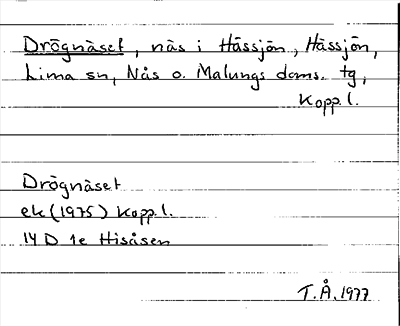 Drögnäset, näs i Hässjön, Hässjön,
Lima sn, Nås o. Malungs doms. tg,
Kopp. l.
Drögnäset
ek (1975) Kopp. l.
14 D 1e Hisåsen
T.Å. 1977